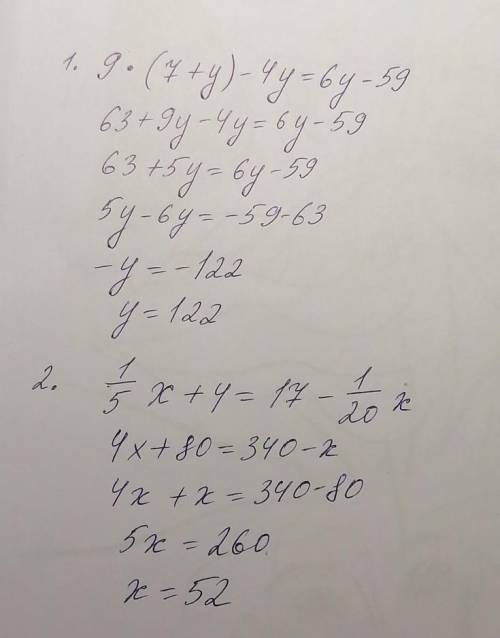 1. 9 · (7 + y) - 4y = 6y - 59
63 + 9y - 4y = 6y - 59
63 + 5y = 6y - 59
5y - 6y = -59 - 63
-y = -122
y = 122
2. 1/5 x + 4 = 17 - 1/20 x
4x + 80 = 340 - x
4x + x = 340 - 80
5x = 260
x = 52